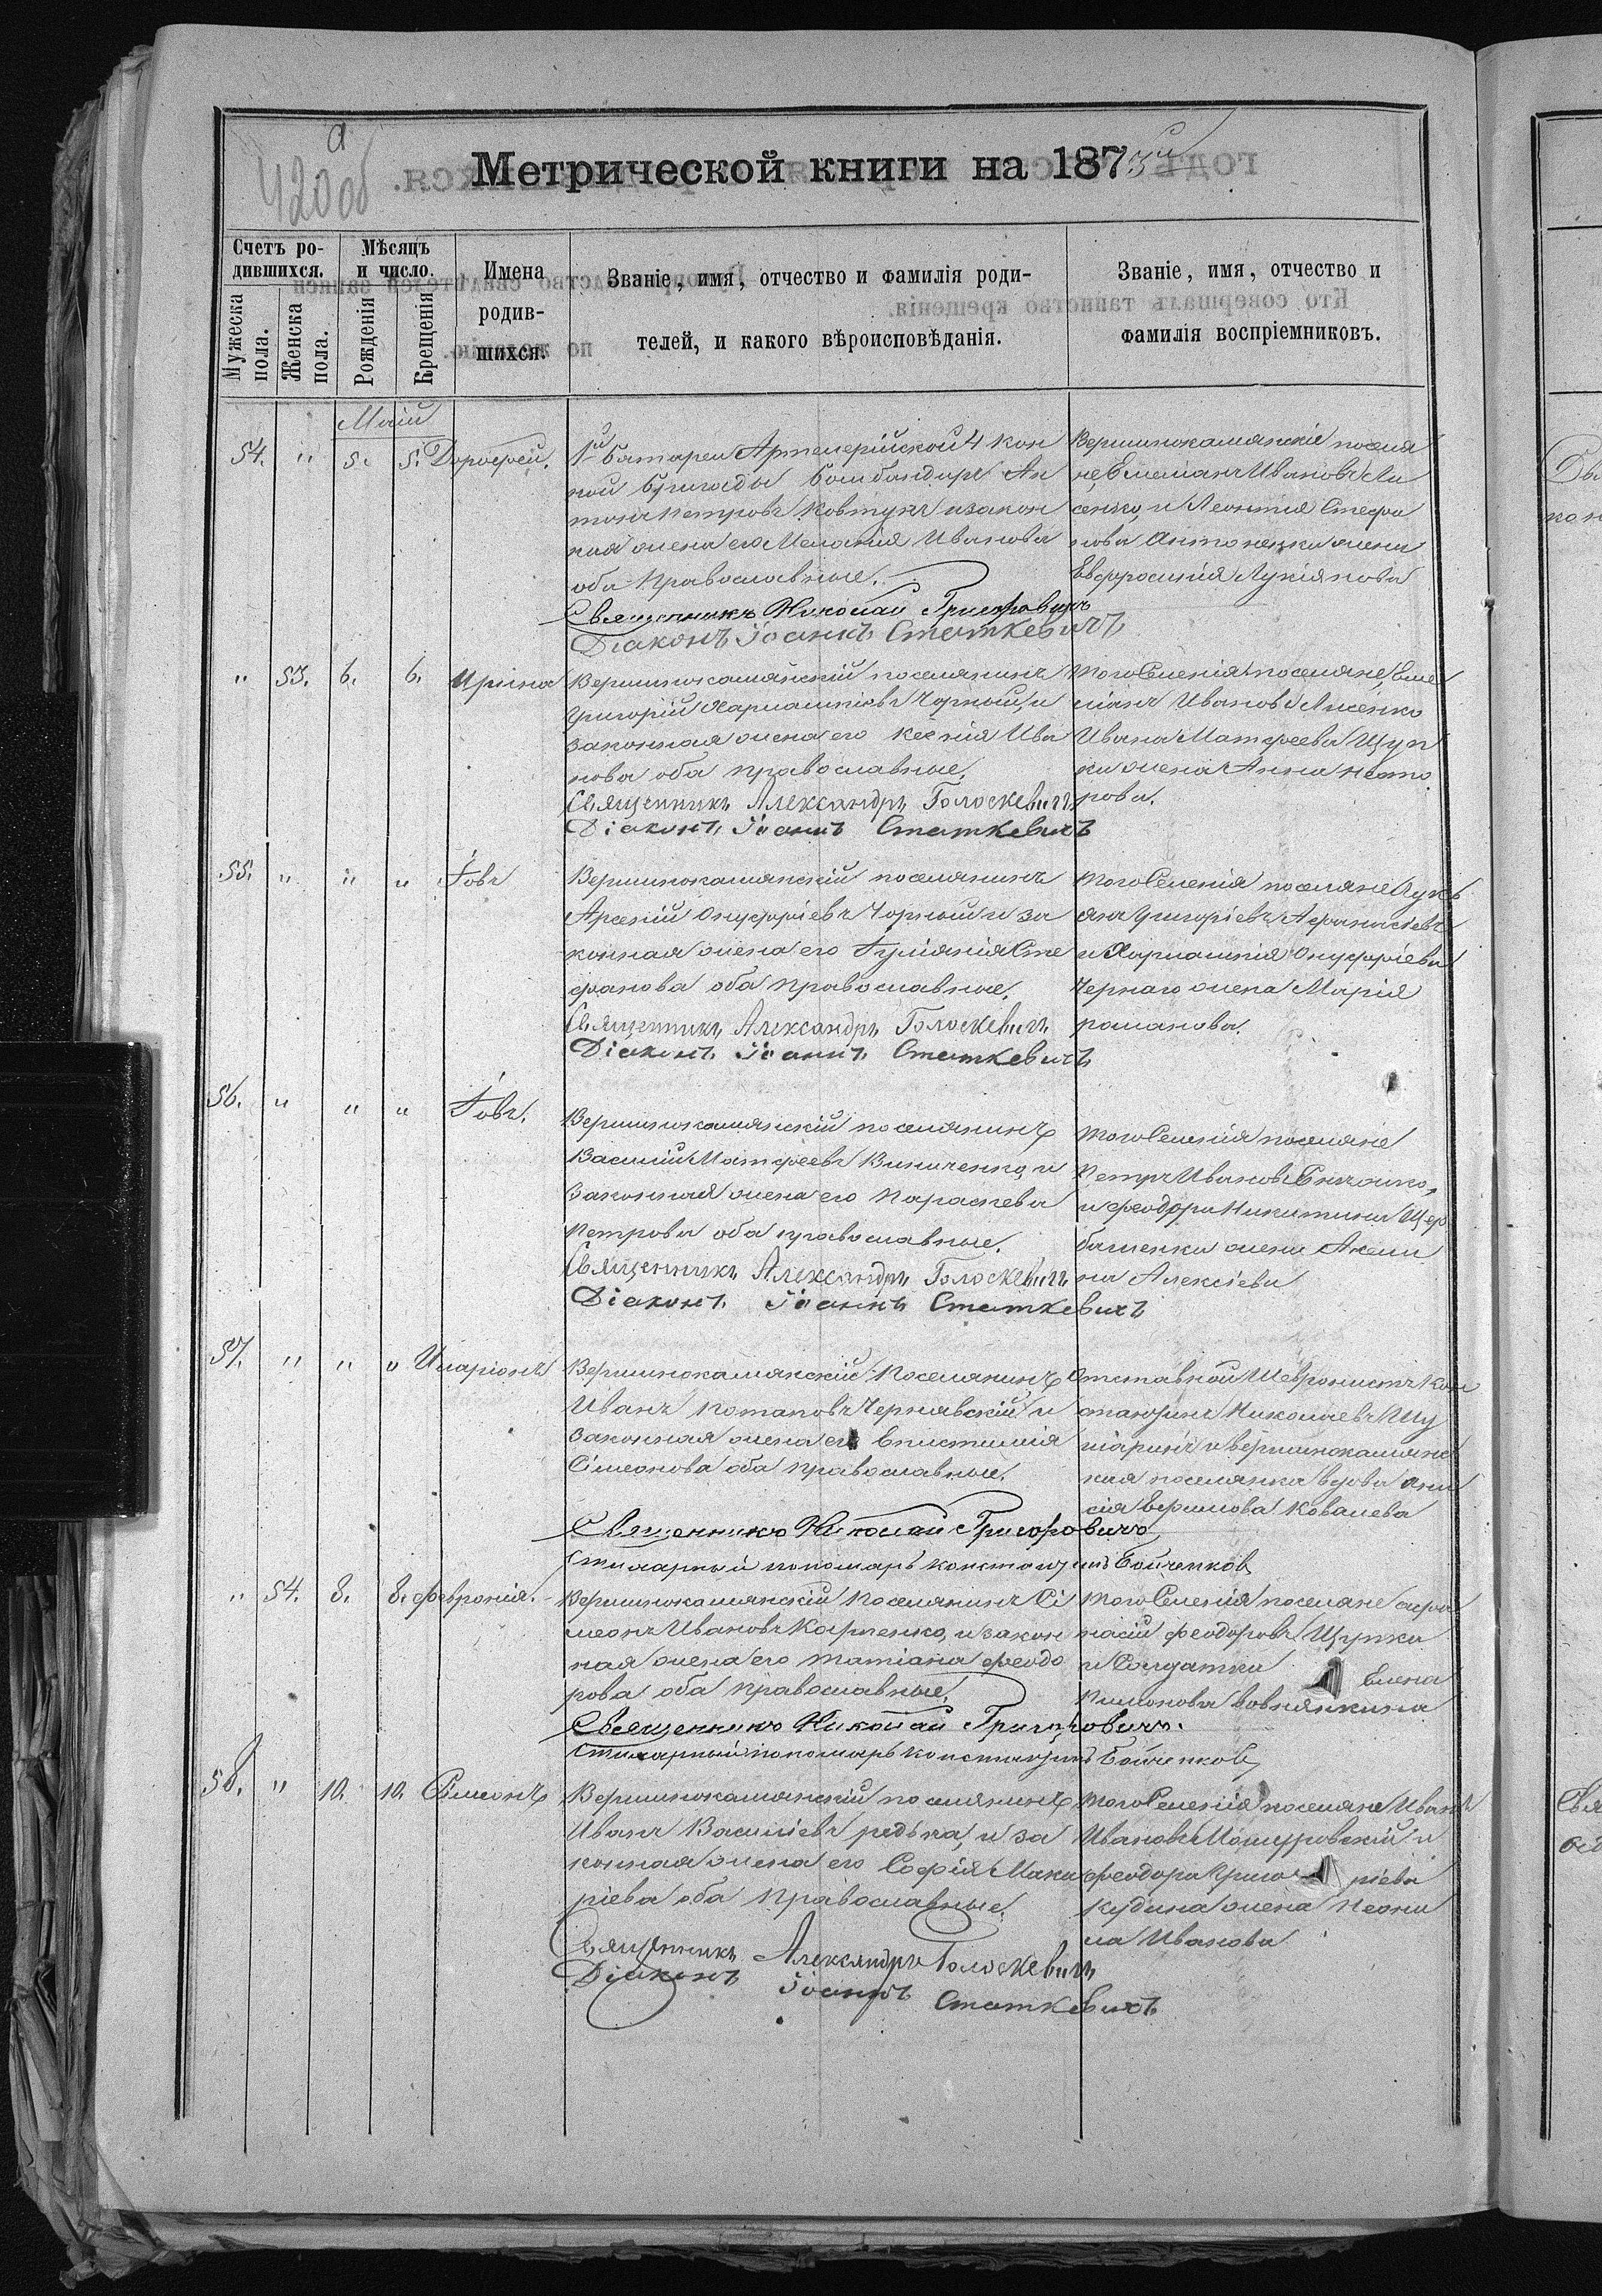 420 об
Метрической книги на 1873й
Счетъ родившихся.
Мужеска пола.
Женска пола.
Мѣсяцъ и число.
Рожденія
Крещенія
Имена родившихся.
Званіе, имя, отчество и фамилія роди-
телей, и какого вѣроисповѣданія.
Званіе, имя, отчество и
фамилія воспріемниковъ.
Маій
54. " 5. 5. Дорофей.
1й батареи Артилерійской 4 кон
ной бригады бомбандиръ Ан
тонъ Петровъ Ковтунъ и закон
ная жена его Меланія Иванова
оба православные.
Священникъ Николай Григоровичъ
Діаконъ Іоаннъ Статкевичъ
Вершинокамянскіе поселя
не, Емельянъ Ивановъ Ли
сенко, и Леонтія Стефа
нова Антонецки жена
Евфросинія Лукіянова
" 53. 6. 6. Ирина
Вершинокамянскій поселянинъ
Григорій Харлампіевъ Чорный, и
законная жена его Ксенія Ива
нова оба православные.
Священникъ Александръ Голоскевичъ
Діаконъ Іоаннъ Статкевичъ
того Селенія поселяне, Еме
ліанъ Ивановъ Лисенко
Ивана Матфеева Щуп
ки жена Анна
рова.
55. " " " Іовъ
Вершинокамянскій поселянинъ
Арсеній Онуфріевъ Чорный и за
конная жена его Іуліанія Сте
фанова оба православные.
Священникъ Александръ Голоскевичъ
Діаконъ Іоаннъ Статкевичъ
того Селенія поселяне Лукь
янъ Григоріевъ Афанасіевъ
и Харлампія Онуфріева
Чернаго жена Марія
романова.
56. " " " Іовъ.
Вершинокамянскій поселянинъ
Василій Матфеевъ Виниченко, и
законная жена его Параскева
Петрова оба православные.
Священникъ Александръ Голоскевичъ
Діаконъ Іоаннъ Статкевичъ
того Селенія поселяне
Петръ Ивановъ
и Феодора Никитина Щер
баненки жена Акели
на Алексіева
57. " " " Иларіонъ
Вершинокамянскій Поселянинъ
Иванъ Потаповъ Чернявскій и
законная жена его Епистимія
Сімеонова оба православные.
Священникъ Николай Григоровичъ
Стихарный пономарь Константинъ Бойченковъ
Отставной Шевронистъ Кон
стантинъ Николаевъ Шу
ляринъ и вершинокамянс
кая поселянка вдова Ани
сія Ефимова Ковалева
" 54. 8. 8. Февронія.
Вершинокамянскій Поселянинъ Сі
меонъ Ивановъ Карпенко, и закон
ная жена его татіана феодо
рова оба православные.
Священникъ Николай Григоровичъ.
Стихарный пономарь Константинъ Бойченковъ
того Селенія поселяне афа
насій феодоровъ Щупка
и Солдатка Елена
Филонова Вовнянкина
58. " 10. 10. Сімеонъ
Вершинокамянскій поселянинъ
Иванъ Василіевъ редька, и за
конная жена его Софія Мака
ріева оба православные.
Священникъ Александръ Голоскевичъ
Діаконъ Іоаннъ Статкевичъ
того Селенія поселяне Иванъ
Ивановъ и
феодора Григоріева
Кудина жена
ла Иванова